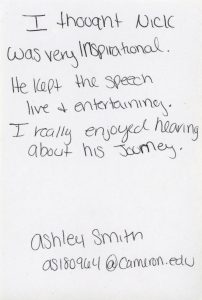 I thought Nick
was very Inspirational.
He kept the speech
live & entertaining.
I really enjoyed hearing
about his Journey.
Ashley Smith
as180964@cameron.edu